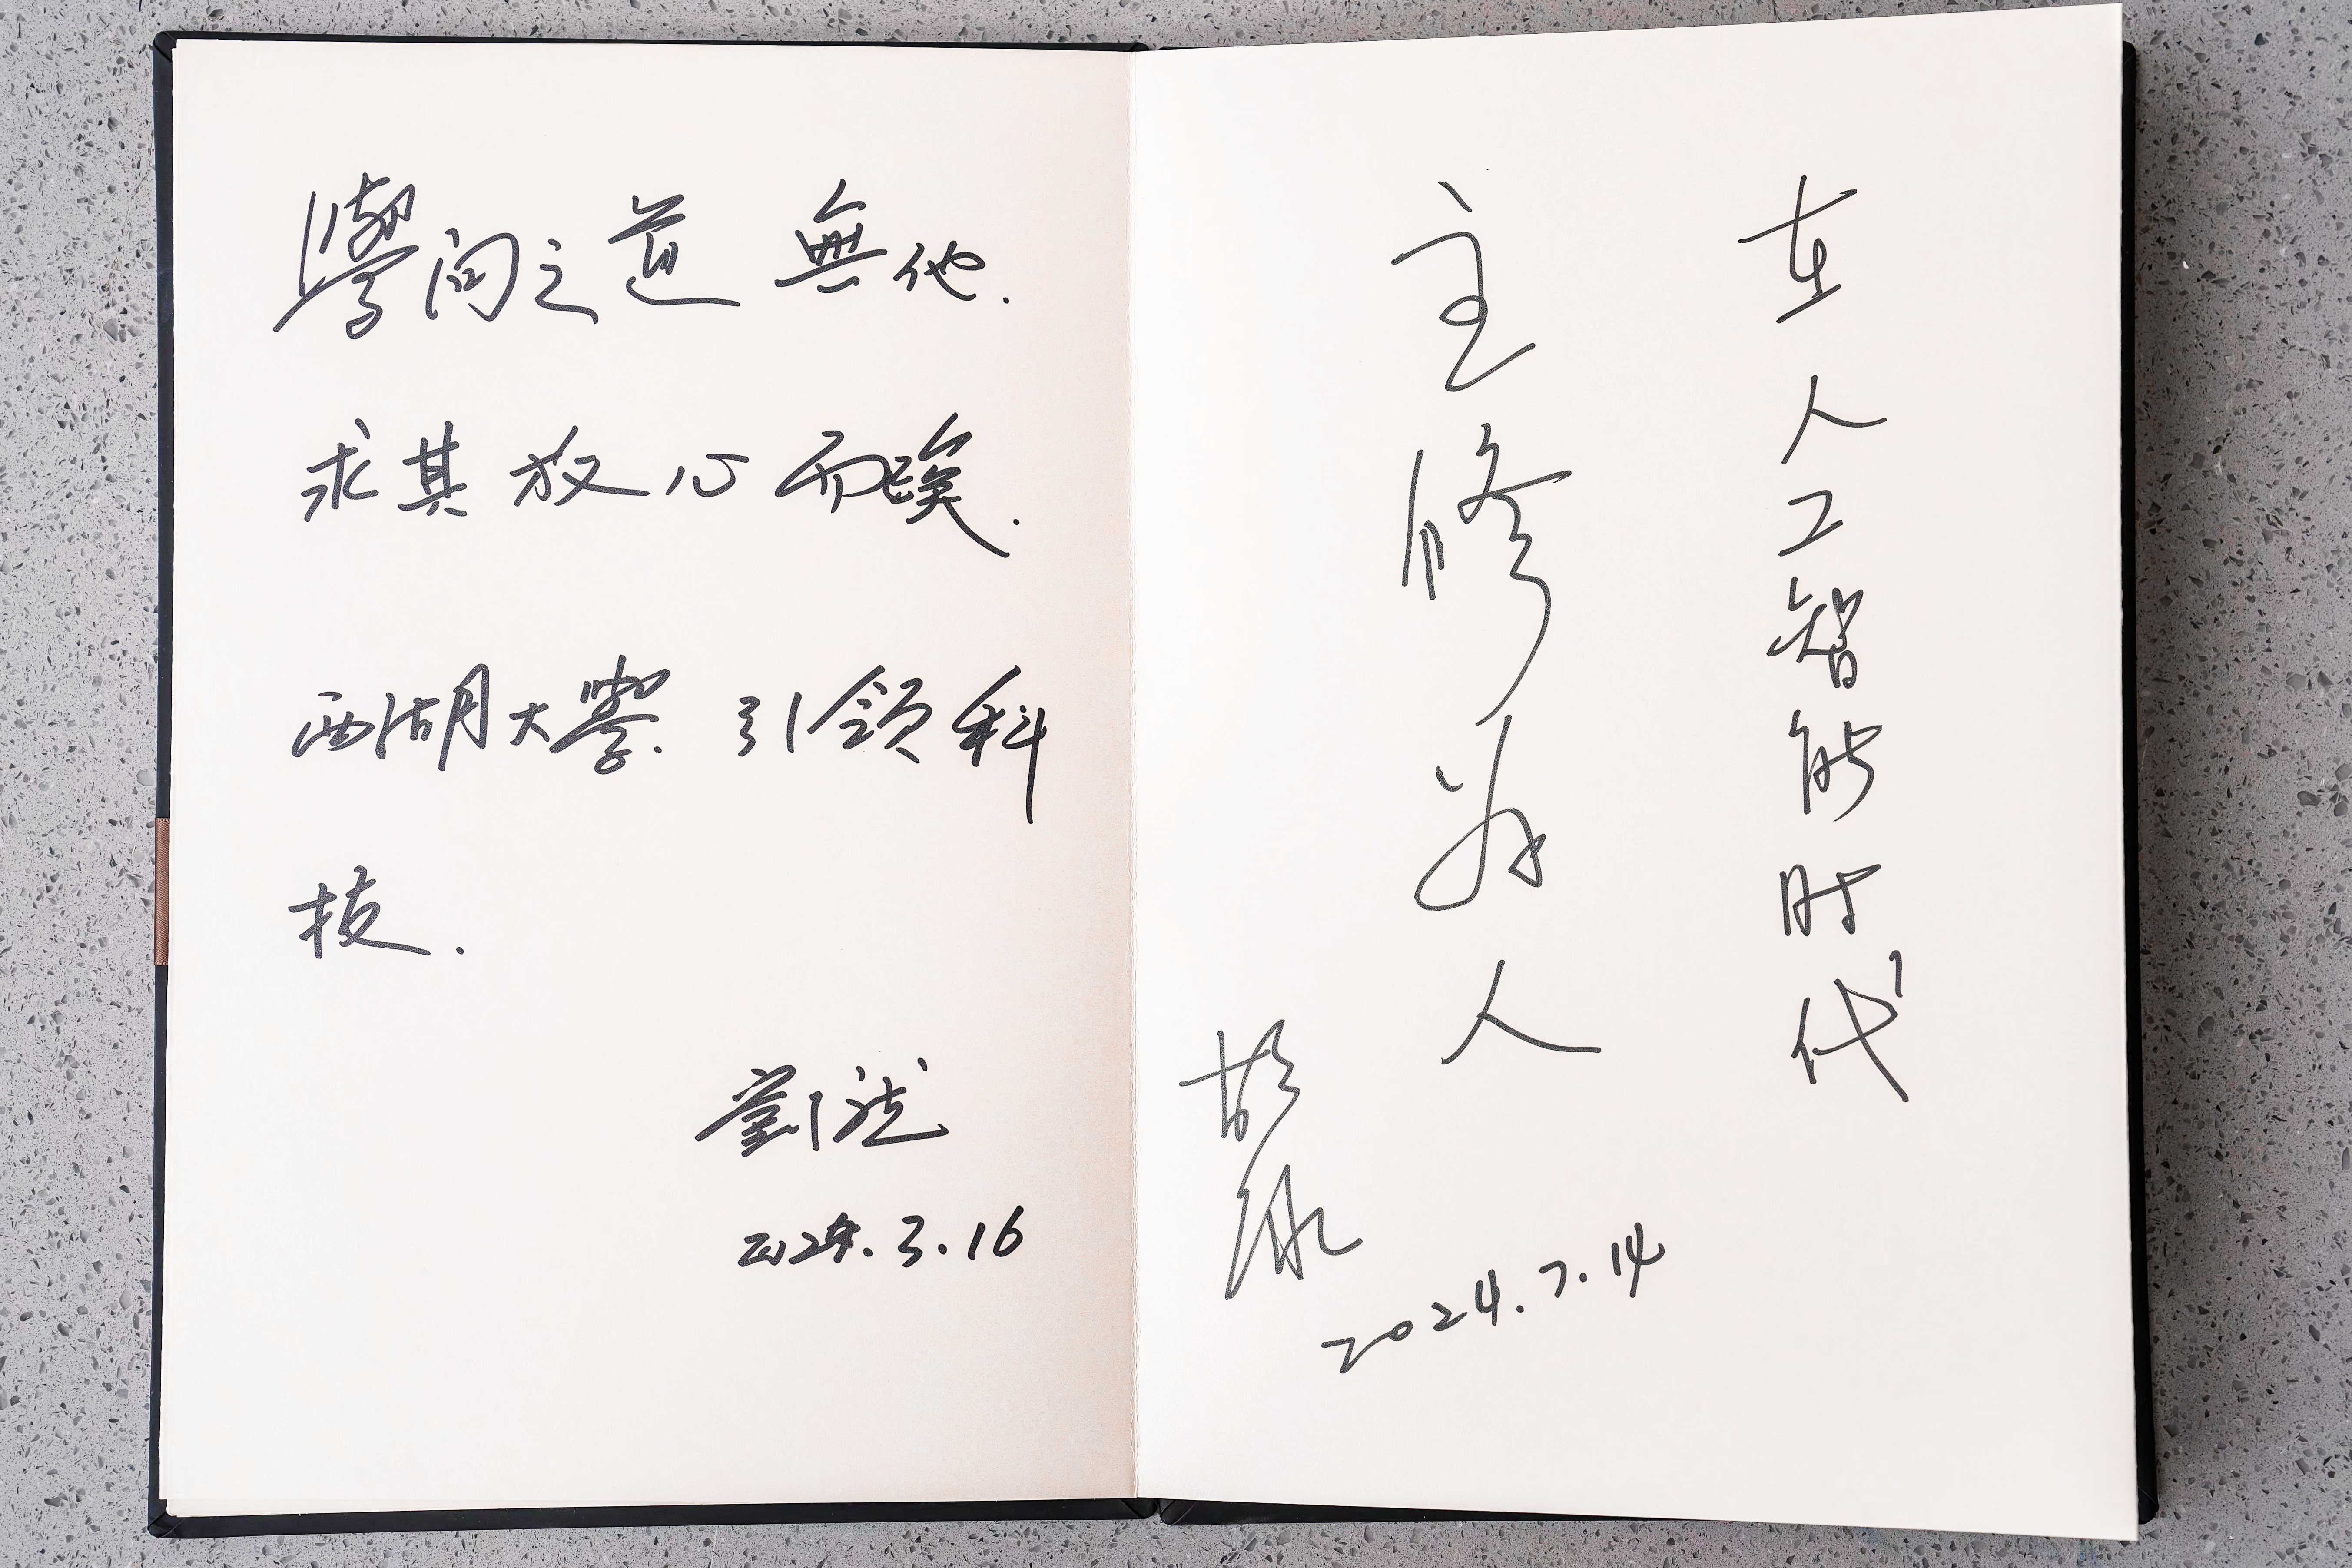 學问之道 無他.
求其放心而已矣.
西湖大學. 引領科
技.
劉
2024.3.16
在人工智能时代
主修为人
胡泳
2024.7.14